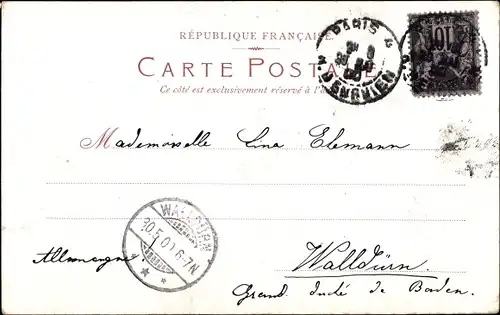 RÉPUBLIQUE FRANÇAISE
PARIS 4
CARTE POSTALE
Ce côté est exclusivement réservé à
Mademoiselle Lina Elemann
WALLDÜRN
30.5.00. 6-7N
Allemagne.
Walldürn.
Grand duché de Baden.